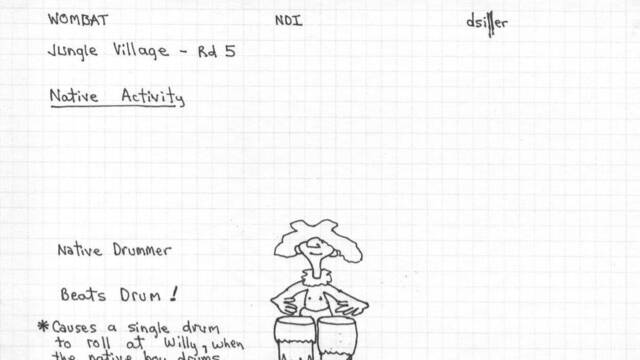 WOMBAT NDI dsiller
Jungle Village - Rd 5
Native Activity
Native Drummer
Beats Drum!
*Causes a single drum
to roll at Willy, when
the native boy drums